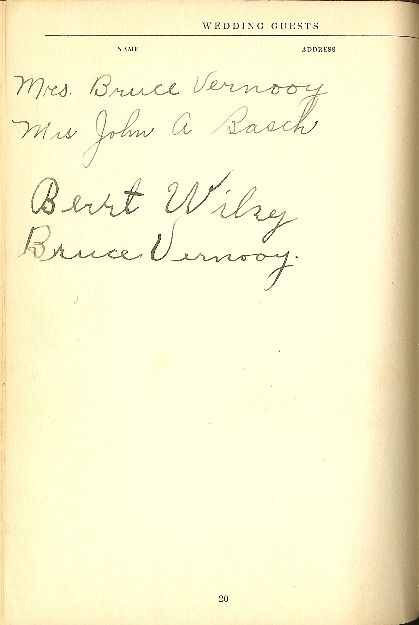 WEDDING GUESTS
NAME ADDRESS
Mrs. Bruce Vernooy
Mrs John A Basch
Bertt Wilsy
Bruce Vernooy.
20